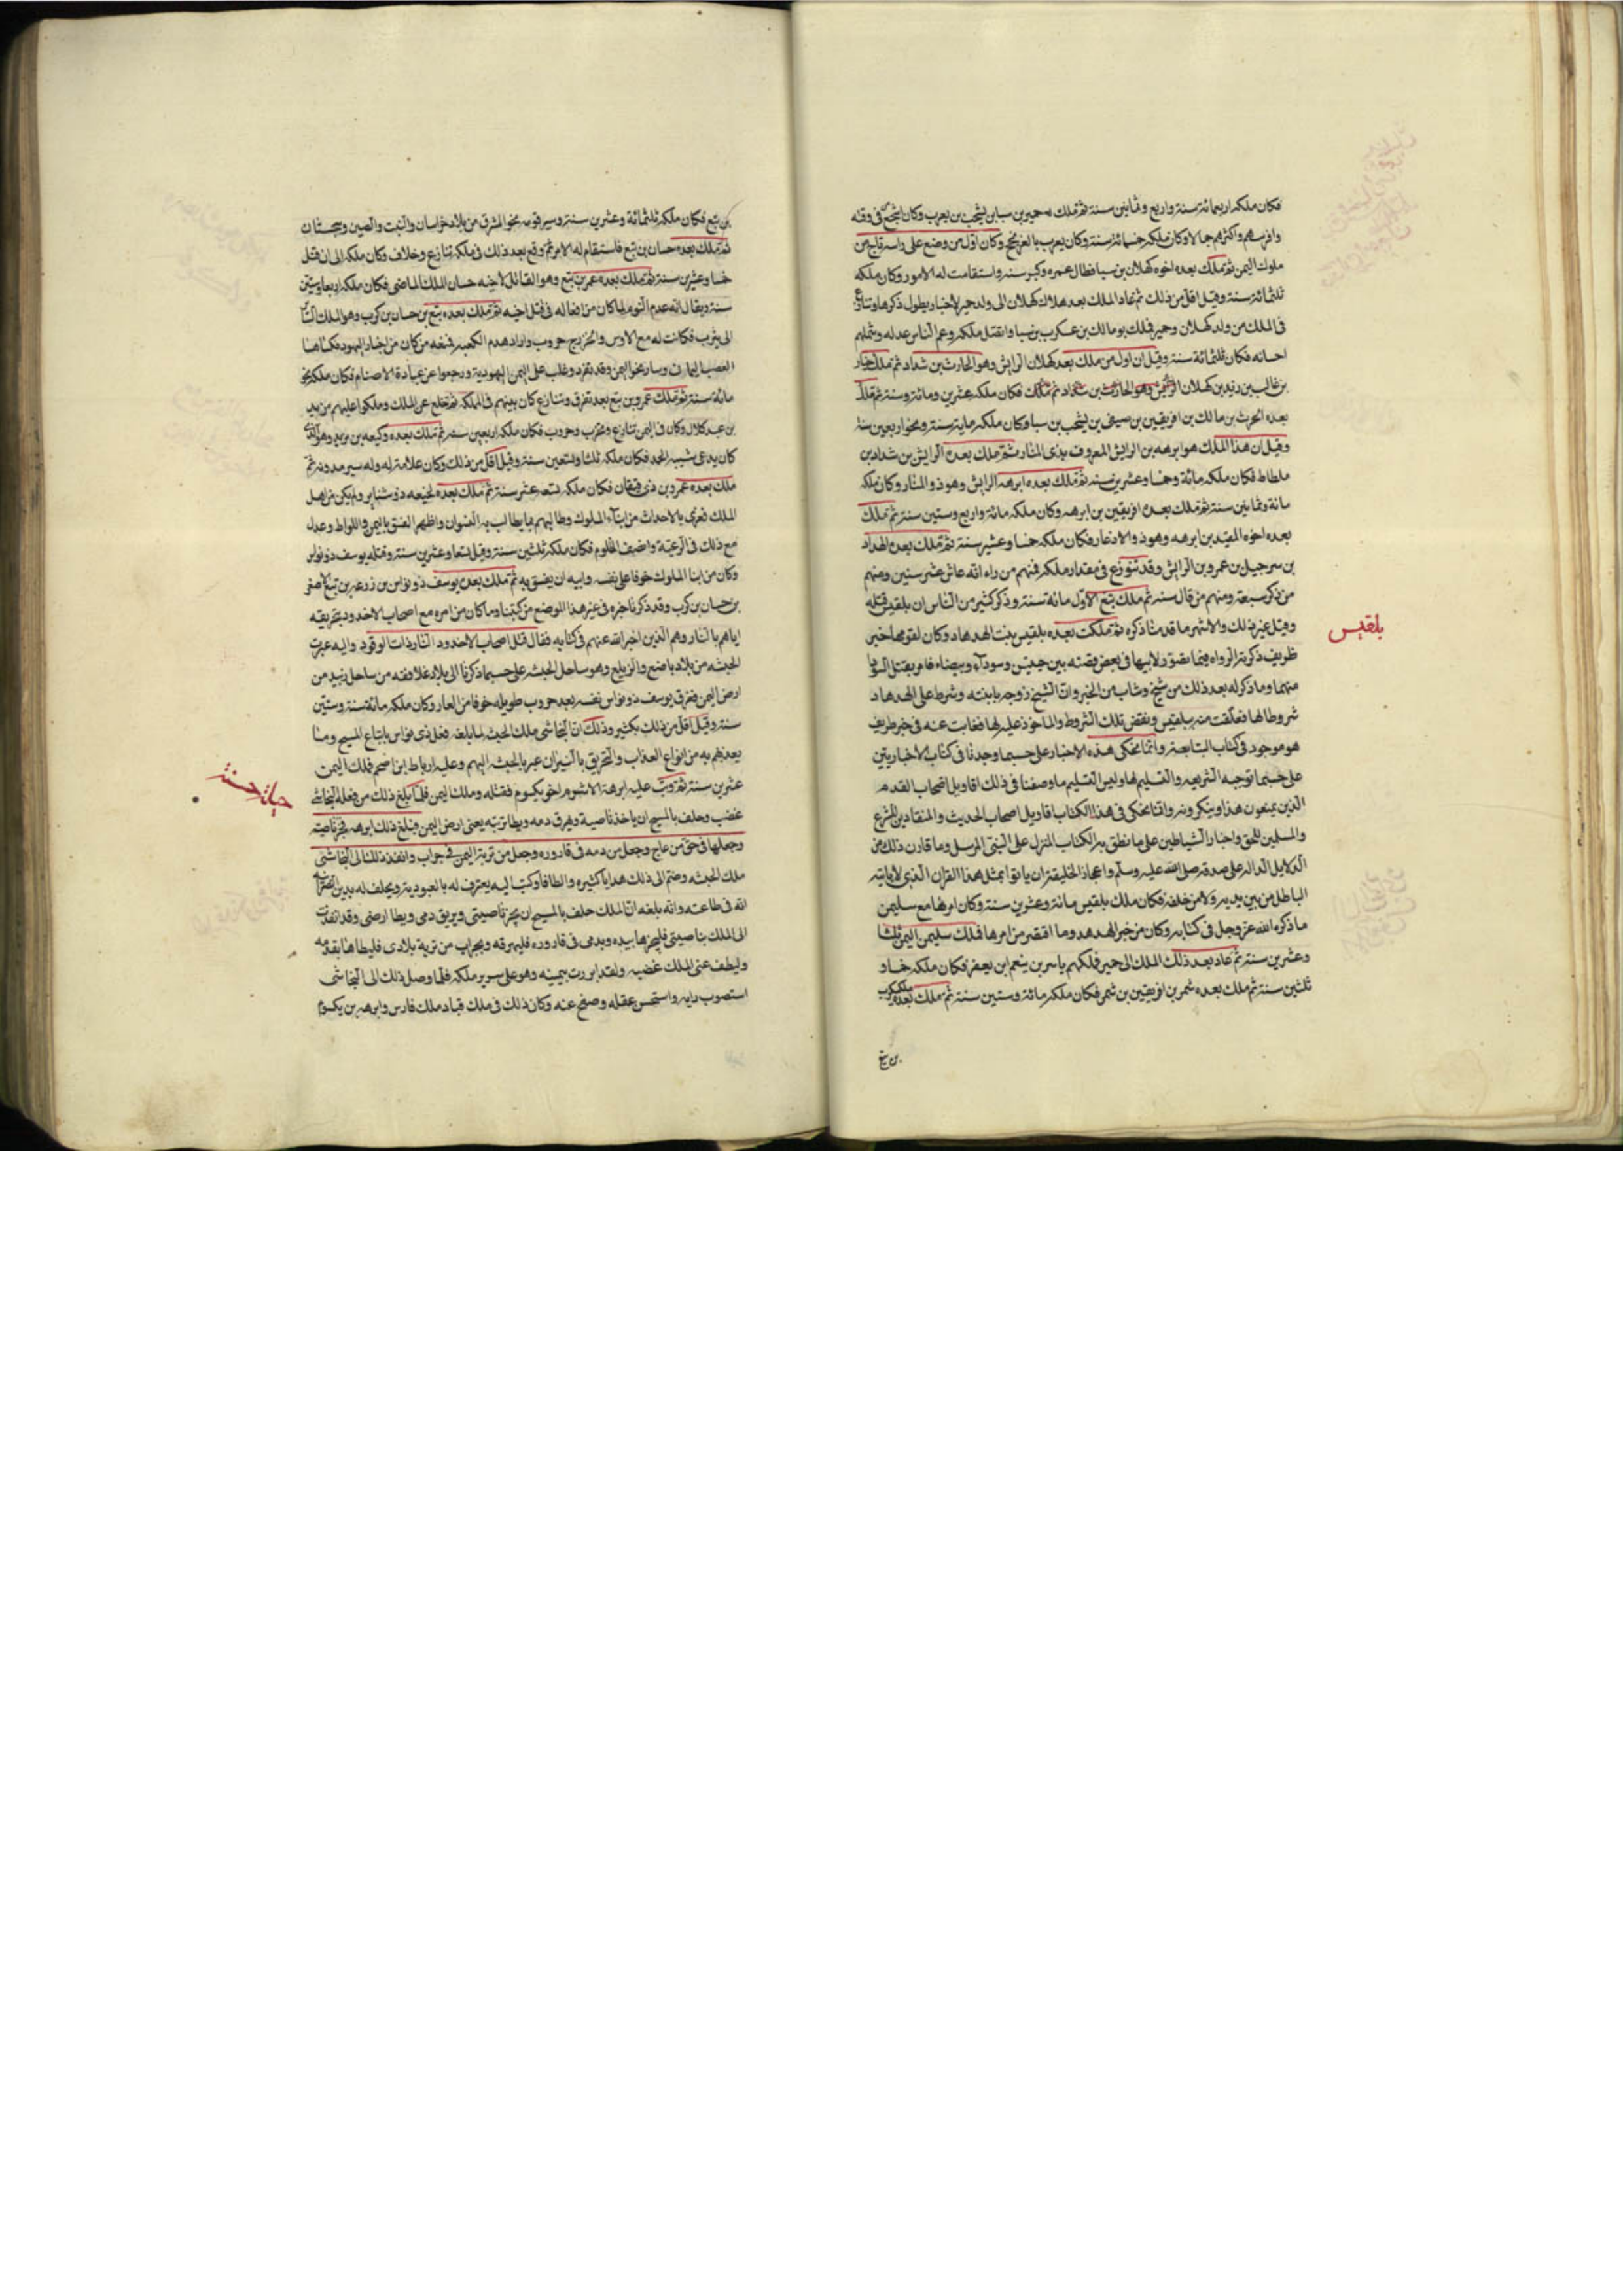 فكان ملكه اربعمائة سنة واربع وثمانين سنة ثم ملك حمير بن سبا بن يشجب بن يعرب وكان اشجع في وقته
وافرسهم واكثرهم جمالا وكان ملكه خمسمائة سنة وكان يعرف بالعرنجج وكان اول من وضع على راسه تاج من
ملوك اليمن ثم ملك بعده اخوه كهلان بن سبا فطال عمره وكبر سنه واستقامت له الامور وكان ملكه
ثلثمائة سنة وقيل اقل من ذلك ثم عاد الملك بعد هلاك كهلان الى ولد حمير لاخبار يطول ذكرها وتنازع
في الملك من ولد كهلان وحمير فملك بو مالك بن عسكرب بن سبا واتصل ملكه وعم الناس عدله وشملهم
احسانه فكان ثلثمائة سنة وقيل ان اول من ملك بعد كهلان الرايش وهو الحارث بن شداد ثم ملك جبار
بن غالب بن زيد بن كهلان فكان ملكه عشرين ومائة وسنة ثم ملك
بعده الحرث بن مالك بن افريقين بن صيفى بن يشجب بن سبا وكان ملكه ماية سنة ونحوا ربعين سنة
وقيل ان هذا الملك هو ابرهه بن الرايش المعروف بذى المنار ثم ملك بعده الرايش بن شداد بن
ملطاط فكان ملكه مائة وخمسا وعشرين سنه ثم ملك بعده ابرهه الرايش وهو ذو المنار وكان ملكه
مائة وثمانين سنة ثم ملك بعده افريقين بن ابرهه وكان ملكه مائة واربع وستين سنة ثم ملك
بعده اخوه العبد بن ابرهه وهو ذو الاذعار فكان ملكه خمسا وعشرين سنة ثم ملك بعده الهداد
بن سرجيل بن عمرو بن الرايش وقد تنوزع في مقدار ملكه فمنهم من راه انه عاش عشر سنين ومنهم
من ذكر سبعة ومنهم من قال سنه ثم ملك تبع الاول مائة سنة وذكر كثير من الناس ان بلقيس قتلته
وقيل غير ذلك والاشهر ما قدمنا ذكره ثم ملكت بعده بلقيس بنت الهدهاد وكان لقومها خبر
بلقيس
ظريف ذكرته الرواه فيما تصور لابيها في بعض قصته بين حيتين وسوداء وبيضاء فامر بقتل السودا
منهما وما ذكر له بعد ذلك من شيخ وشاب من الجن وان الشيخ زوجه بابنته وشرط على الهدهاد
شروطا لها فعلقت منه ببلقيس ونقض تلك الشروط والماخوذ عليه لها فغابت عنه في خبر طريف
هو موجود في كتاب التبابعة وانما نحكى هذه الاخبار على حسبما وجدنا في كتاب الاخباريين
على حسبما توجبه الشريعه والتسليم لها وليس التسليم ما وصفنا في ذلك اقاويل اصحاب القدم
الذين يمنعون هذا وينكرونه وانما نحكى في هذا الكتاب اقاويل اصحاب الحديث والمنقادين للشرع
والمسلمين للحق واخبار الشياطين على ما نطق به الكتاب المنزل على النبى المرسل وما قارن ذلك من
الدلايل الداله على صدقه صلى الله عليه وسلم واعجاز الخليقة ان ياتوا بمثل هذا القران الذي لا ياتيه
الباطل من بين يديه ولا من خلفه فكان ملك بلقيس مائة وعشرين سنة وكان امرها مع سليمن
ما ذكره الله عز وجل في كتابه وكان من خبر الهدهد وما اقتصر من امرها فملك سليمن اليمن ثلثا
وعشرين سنة ثم عاد بعد ذلك الملك الى حمير فملكهم ياسر بن ينعم ابن يعفر فكان ملكه خمسا و
ثلثين سنة ثم ملك بعده شمر بن افريقين بن شمر فكان ملكه مائة وستين سنة ثم ملك بعده
بن تبع
بن تبع فكان ملكه ثلثمائة وعشرين سنة وسير قومه نحو المشرق من بلاد خراسان والتبت والصين وسجستان
ثم ملك بعده حسان بن تبع فاستقام له الامر ثم وقع بعد ذلك في ملكه تنازع وخلاف وكان ملكه الى ان قتل
خمسا وعشرين سنة ثم ملك بعده عمر بن تبع وهو القاتل لاخيه حسان الملك الماضى فكان ملكه اربعا وستين
سنة ويقال انه عدم النوم لما كان من افعاله في قتل اخيه ثم ملك بعده تبع بن حسان بن كرب وهو الملك السائر
الى يثرب فكانت له مع الاوس والخزرج حروب واراد هدم الكعبه فمنعه من كان من احبار اليهود فكساها
القصب اليمان وسار نحو اليمن وقد تهود وغلب على اليمن اليهودية ورجعوا عن عبادة الاصنام فكان ملكه نحو
مائة سنة ثم ملك عمرو بن تبع بعد تفرق وتنازع كان بينهم في المملكه ثم خلع عن الملك وملكوا عليهم مرثد
بن عبد كلال وكان في اليمن تنازع وتحزب وحروب فكان ملكه اربعين سنه ثم ملك بعده وكيعه بن مرثد وهو الذى
كان يدعى شيبه الحمد فكان ملكه ثلثا وتسعين سنة وقيل اقل من ذلك وكان علامة له وله سير مدونه ثم
ملك بعده عمرو بن ذى قيقان فكان ملكه تسعه عشر سنة ثم ملك بعده لخنيعه ذو شناير ولم يكن من اهل
الملك فعرى بالاحداث من ابناء الملوك وطالبهم بما يطالب به النسوان واظهر الفسق باليمن واللواط وعدل
مع ذلك في الرعية وانصف المظلوم فكان ملكه ثلثين سنة وقيل تسعا وعشرين سنة وقتله يوسف ذو نواس
وكان من ابنا الملوك خوفا على نفسه وابيه ان يفسق به ثم ملك بعده يوسف ذو نواس بن زرعه بن تبع الاصغر
بن حسان بن كرب وقد ذكرنا خبره في غير هذا الموضع من كتبنا وما كان من امره مع اصحاب الاخدود بتحريقه
اياهم بالنار وهم الذين اخبر الله عنهم في كتابه فقال قتل اصحاب الاخدود النار ذات الوقود واليه عبرت
الحبشه من بلاد باضع والزيلع وهو ساحل الحبشه على حسبما ذكرنا الى بلاد غلافقه من ساحل زبيد من
ارض اليمن فغرق يوسف ذو نواس نفسه بعد حروب طويله خوفا من العار وكان ملكه مائة سنة وستين
سنة وقيل اقل من ذلك بكثير وذلك ان النجاشى ملك الحبشه لما بلغه فعل ذى نواس باتباع المسيح وما
يعذبهم به من انواع العذاب والتحريق بالنيران عبر بالحبشه اليهم وعليه ارياط ابن اضحم فملك اليمن
عشرين سنة ثم وثب عليه ابرهة الاشرم ابو يكسوم فقتله وملك اليمن فلما بلغ ذلك من فعله النجاشى
غضب وحلف بالمسيح ان ياخذ ناصيته ويهرق دمه ويطا تربته يعنى ارض اليمن فبلغ ذلك ابرهه فجز ناصيته
وجعلها في حق من عاج وجعل من دمه في قاروره وجعل من تربة اليمن في جراب وانفذ ذلك الى النجاشى
ملك الحبشه وضم الى ذلك هدايا كثيره والطافا وكتب اليه يعترف له بالعبودية ويحلف له بدين النصرانيه
انه في طاعته وانه بلغه ان الملك حلف بالمسيح ان يجز ناصيتى ويريق دمى ويطا ارضى وقد انفذت
الى الملك بناصيتى فليجزها بيده وبدمى في قاروره فليهرقه وبجراب من تربة بلادى فليطاها بقدمه
وليطف عنى الملك غضبه ولقد ابررت يمينه وهو على سرير ملكه فلما وصل ذلك الى النجاشى
استصوب رايه واستحسن عقله وصفح عنه وكان ذلك في ملك قباد ملك فارس وابرهه بن يكسوم